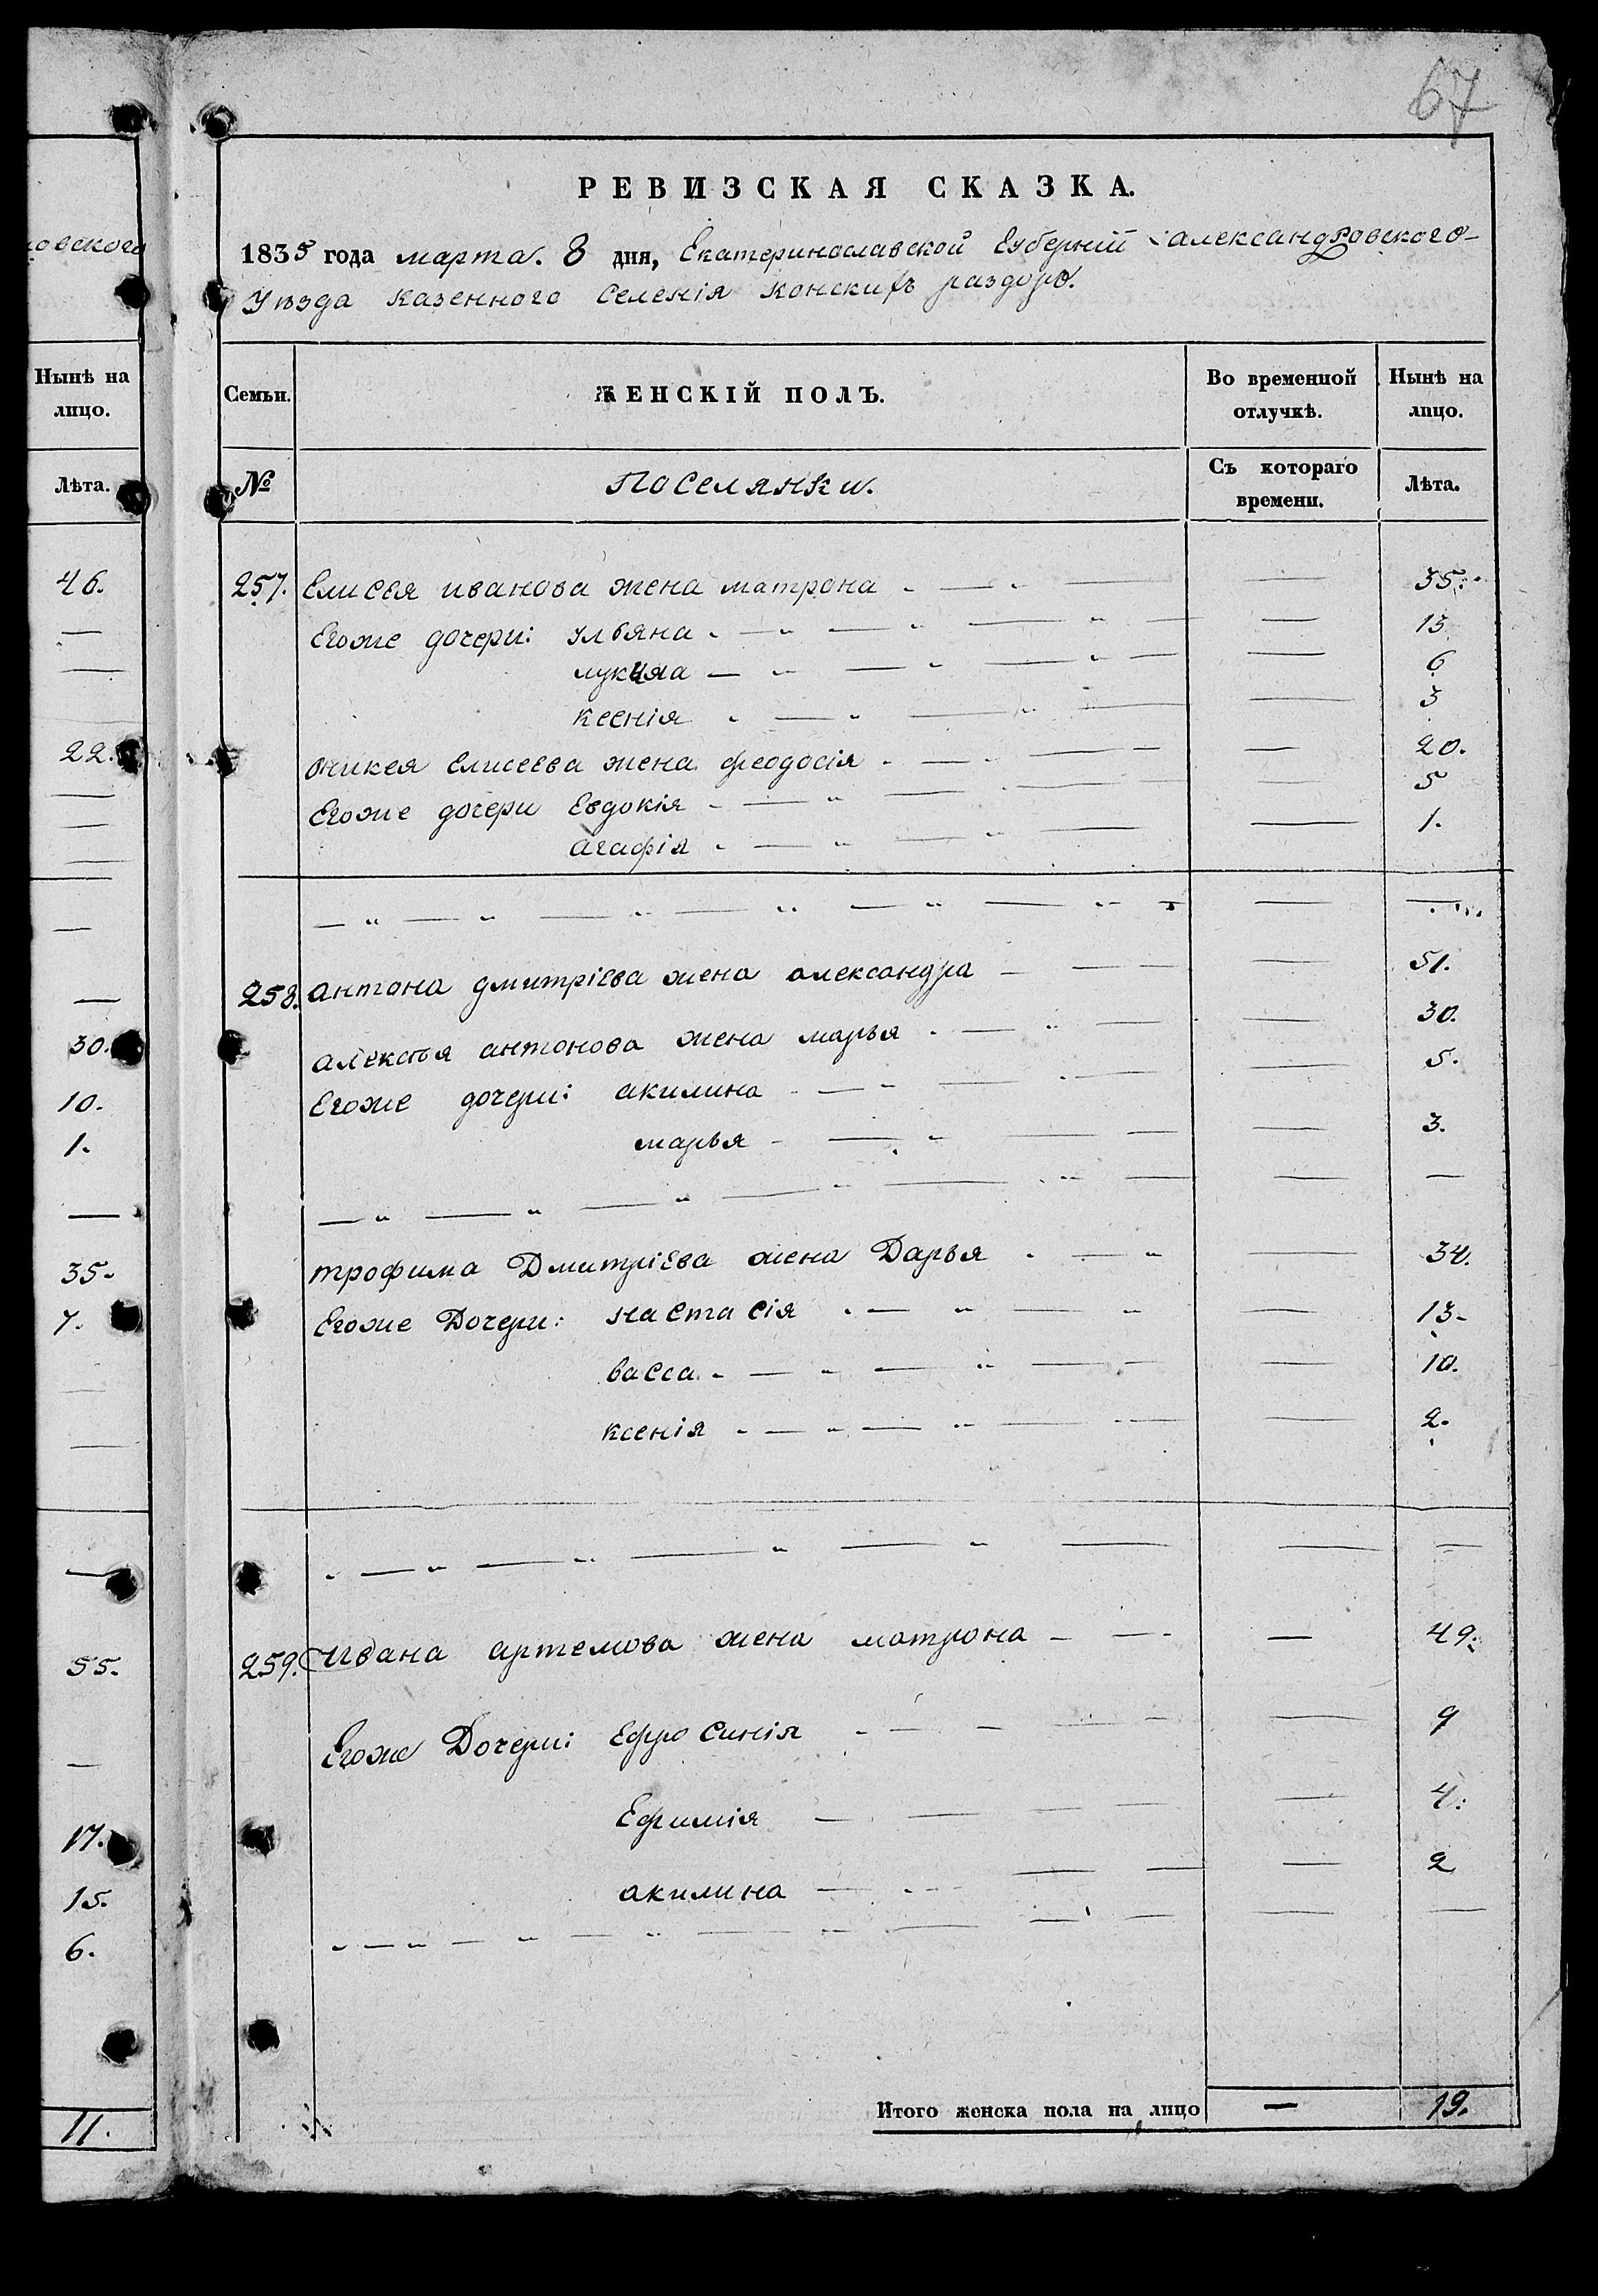 67
РЕВИЗСКАЯ СКАЗКА.
1835 года марта. 8 дня, Екатеринославской Губерніи александровского
Уѣзда казенного Селенія конскихъ раздоръ.
Семьи. ЖЕНСКІЙ ПОЛЪ. Во временной отлучкѣ. Нынѣ на лицо.
№ Поселянки. Съ котораго времени. Лѣта.
257. Елисея иванова жена матрона — 35.
Егоже дочери: ульяна — 13
лукия — 6
ксенія — 3
Елисеева жена феодосія — 20.
Егоже дочери Евдокія — 5
агафія — 1.
258. антона дмитріева жена александра — 51.
алексѣя антонова жена марья — 30.
Егоже дочери: акилина — 5.
марья — 3.
трофима Дмитріева жена Дарья — 34.
Егоже Дочери: настасія — 13.
васса — 10.
ксенія — 2.
259. Ивана артемова жена матрона — 49.
Егоже Дочери: Ефросинія — 9
Ефимія — 4.
акилина — 2
Итого женска пола на лицо — 19.
овского
Нынѣ на
лицо.
Лѣта.
46.
22.
30.
10.
1.
35.
7.
55.
17.
15.
6.
11.